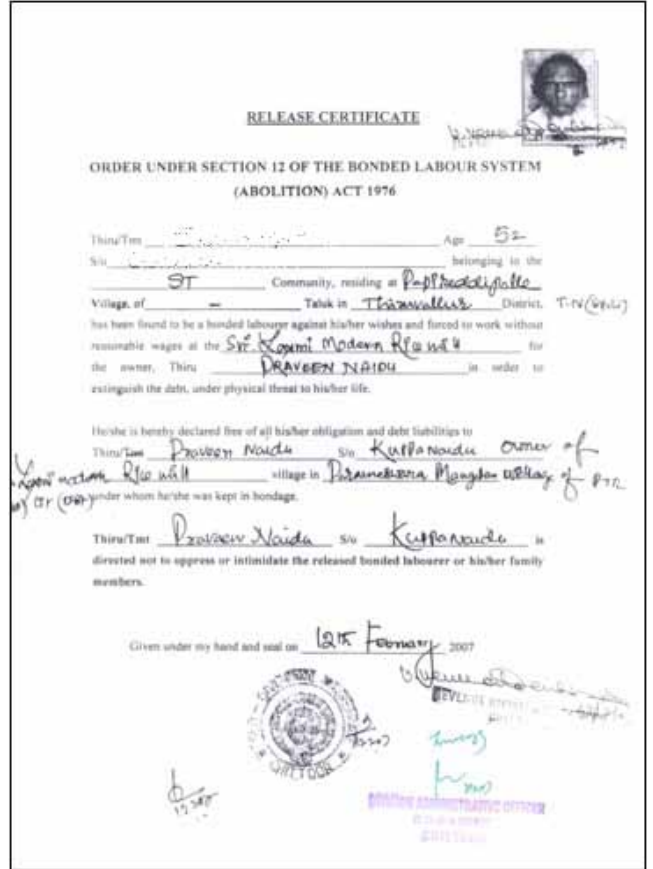 RELEASE CERTIFICATE
ORDER UNDER SECTION 12 OF THE BONDED LABOUR SYSTEM
(ABOLITION) ACT 1976
Thiru/Tmt Age 52
S/o belonging to the
ST Community, residing at
Village, of – Taluk in Thiruvallur District, T.N
has been found to be a bonded labourer against his/her wishes and forced to work without
reasonable wages at the Sri. Modern Rice Mill for
the owner, Thiru PRAVEEN NAIDU in order to
extinguish the debt, under physical threat to his/her life.
He/she is hereby declared free of all his/her obligation and debt liabilities to
Thiru/Tmt Praveen Naidu S/o Kuppa Naidu owner of
Rice Mill village in village of PTR
under whom he/she was kept in bondage.
Thiru/Tmt Praveen Naidu S/o Kuppa Naidu is
directed not to oppress or intimidate the released bonded labourer or his/her family
members.
Given under my hand and seal on 12th February 2007
REVENUE
CHITTOOR
DIVISION ADMINISTRATIVE OFFICER
CHITTOOR